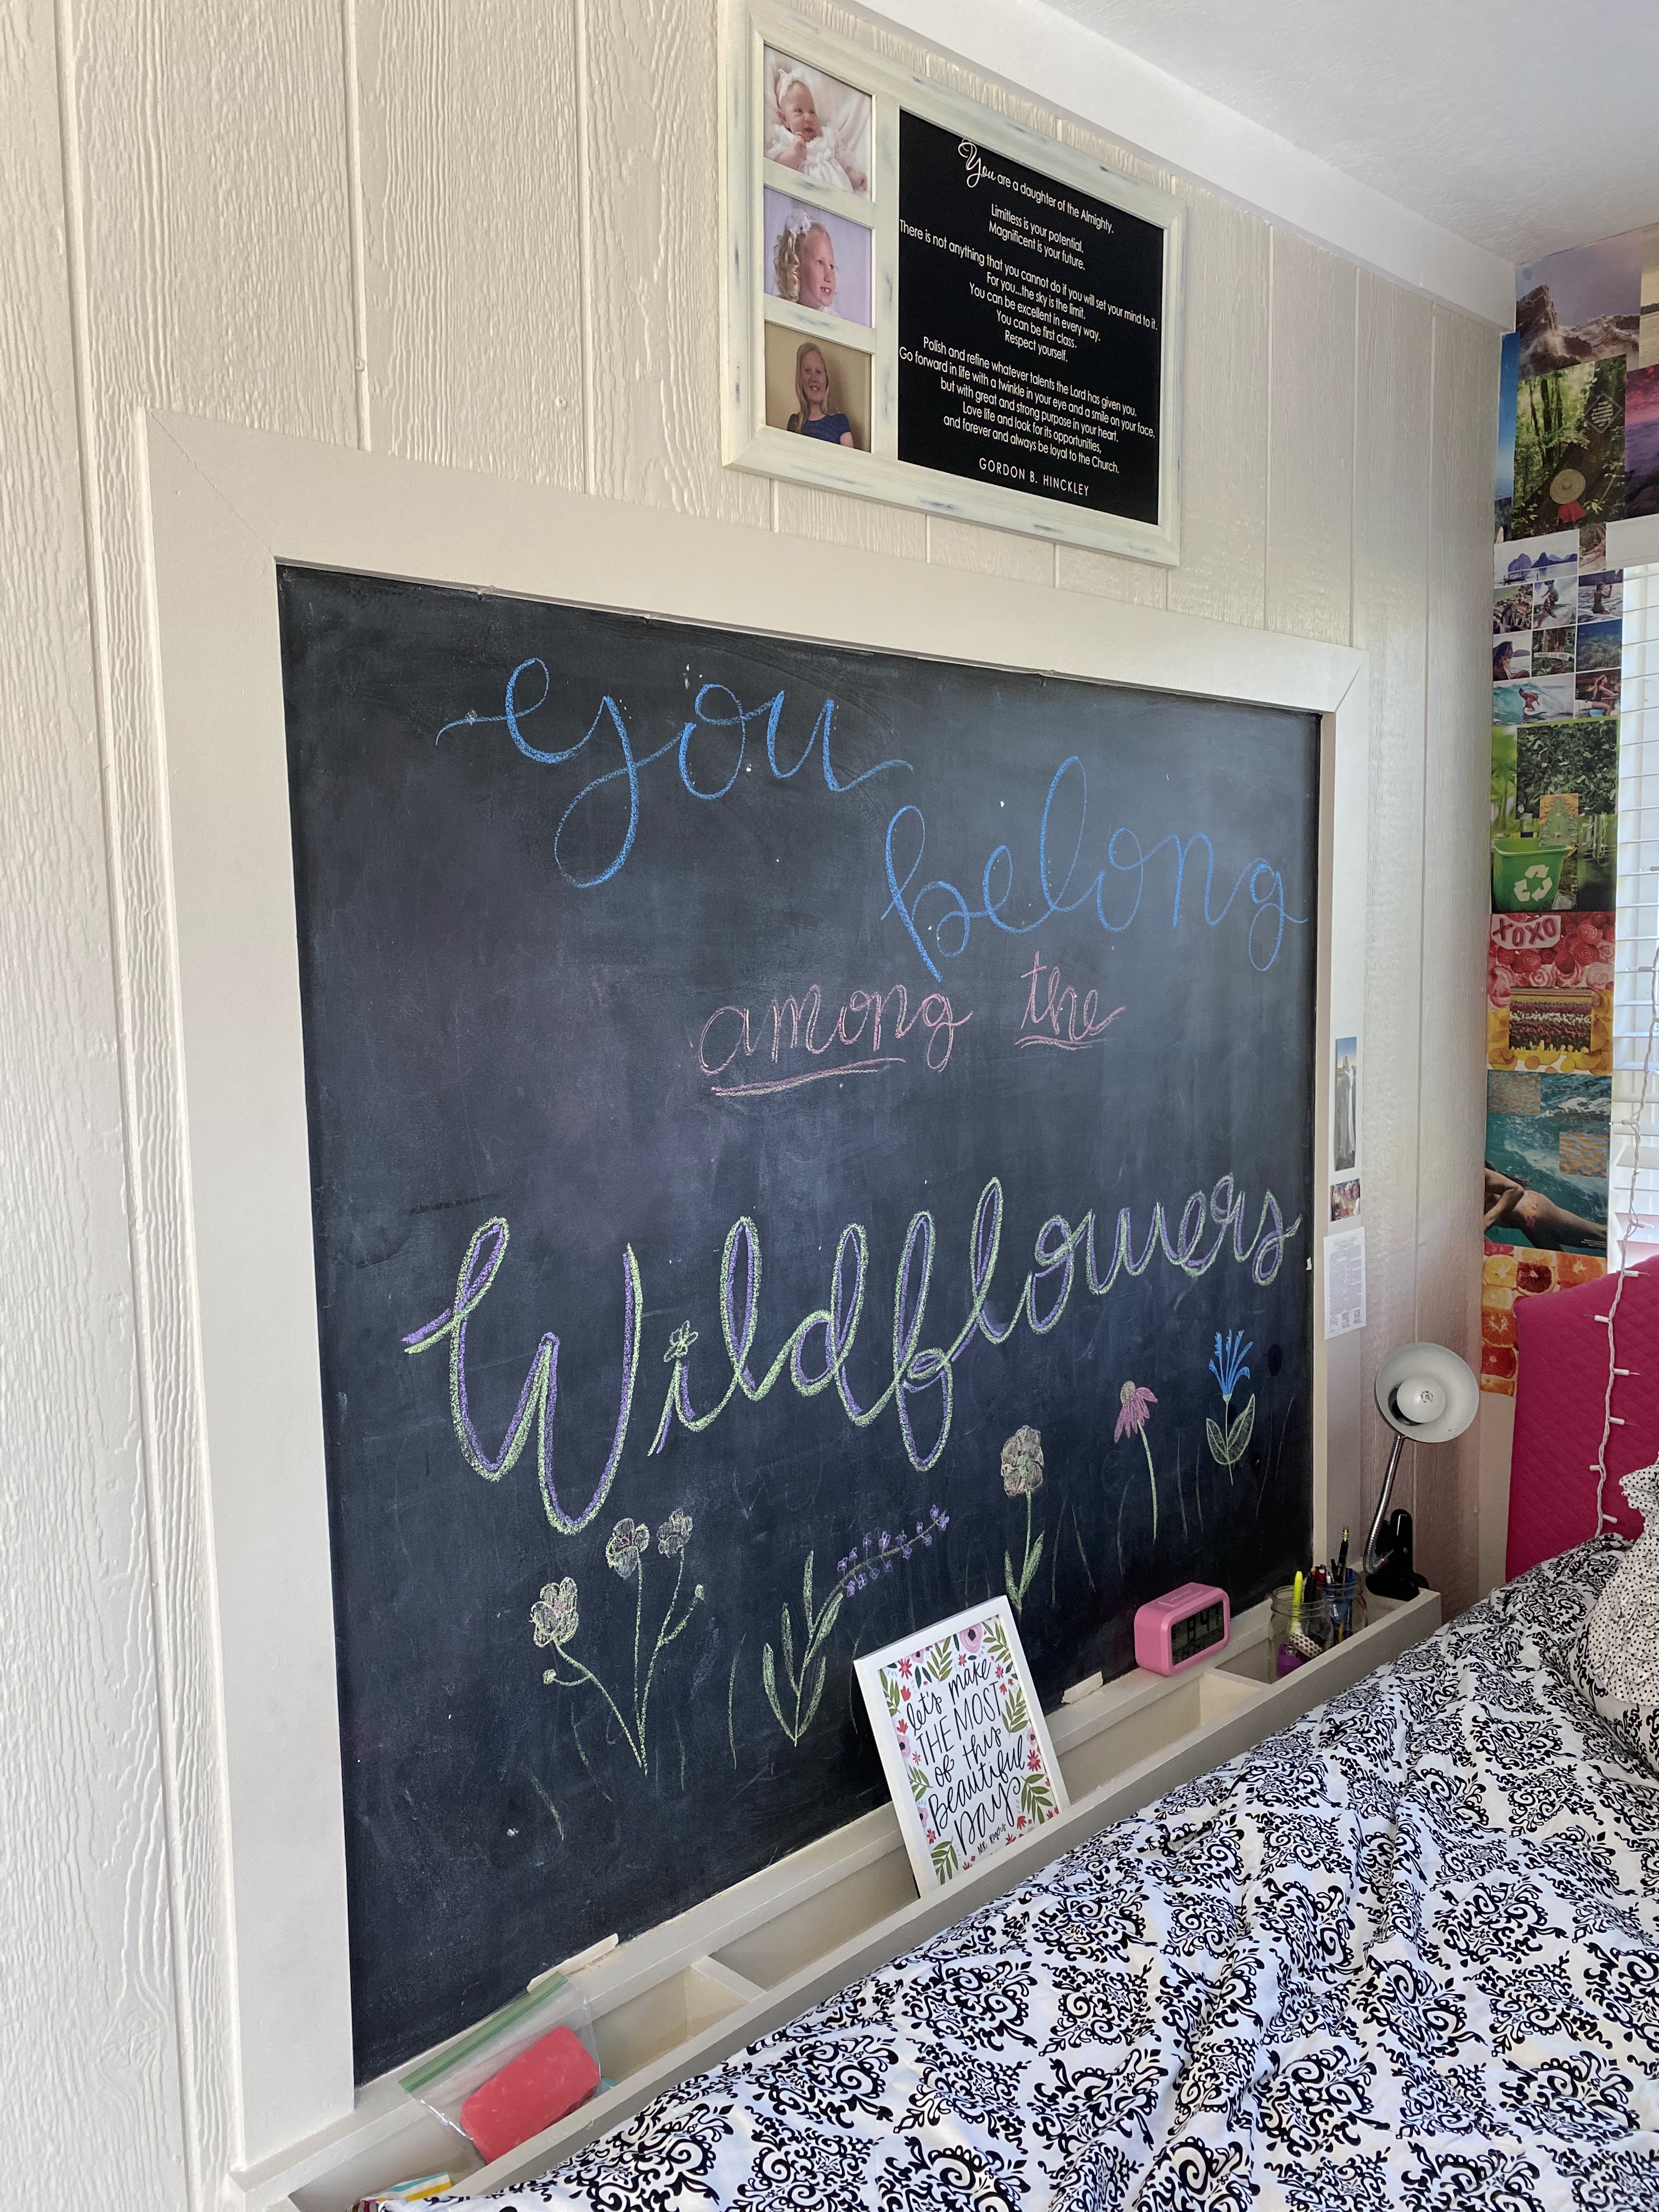 You are a daughter of the Almighty.
Limitless is your potential.
Magnificent is your future.
There is not anything that you cannot do if you will set your mind to it.
For you...the sky is the limit.
You can be excellent in every way.
You can be first class.
Respect yourself.
Polish and refine whatever talents the Lord has given you.
Go forward in life with a twinkle in your eye and a smile on your face,
but with great and strong purpose in your heart.
Love life and look for its opportunities,
and forever and always be loyal to the Church.
GORDON B. HINCKLEY
you
belong
among the
Wildflowers
XOXO
let's make
THE MOST
of this
beautiful
Day